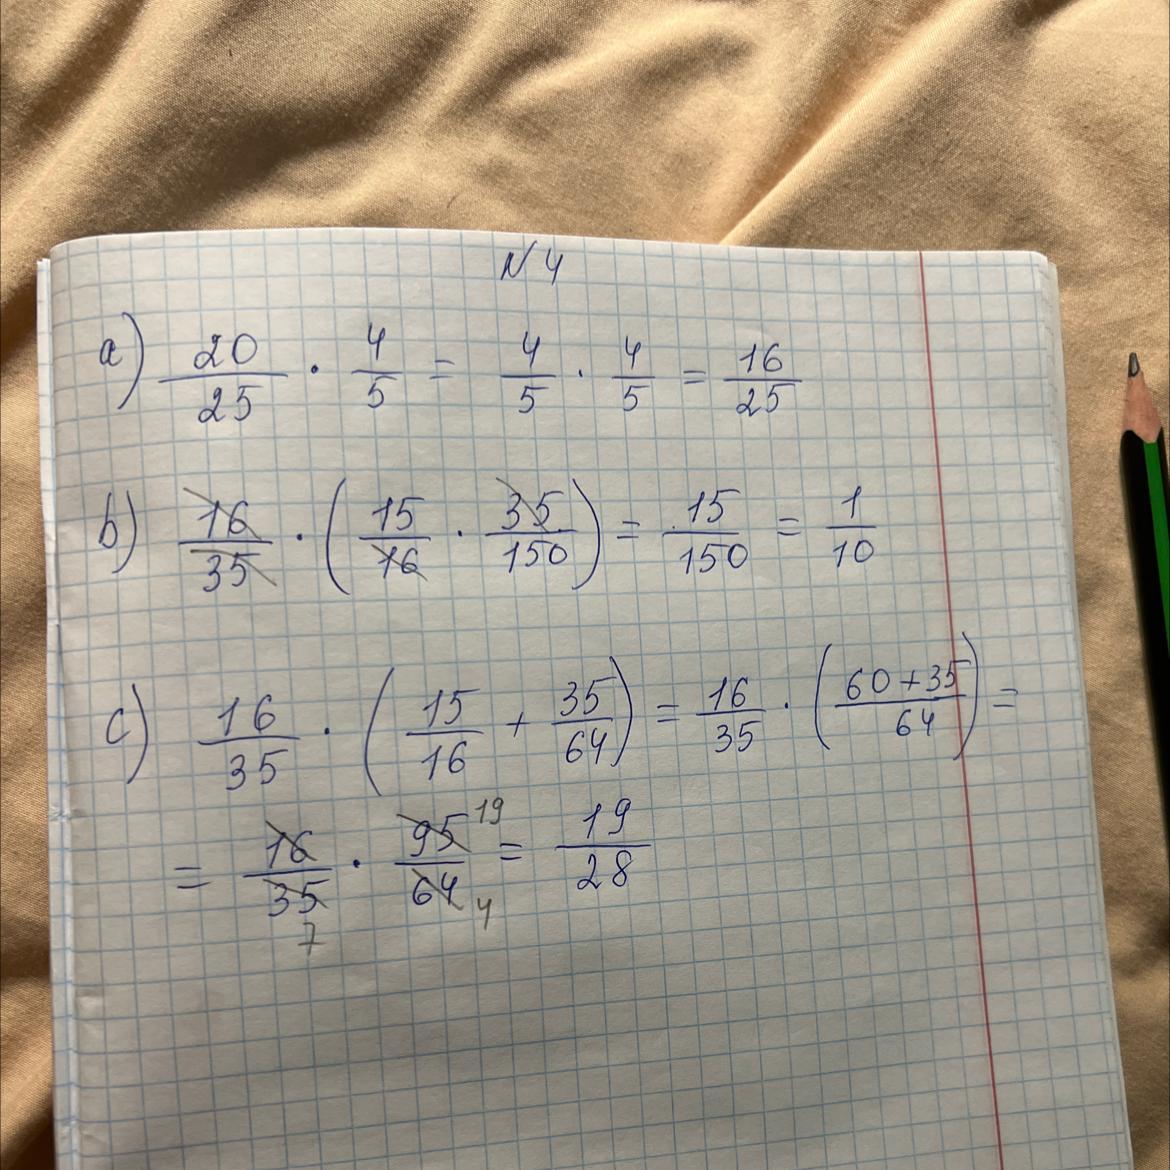 N 4
a) 20/25 · 4/5 = 4/5 · 4/5 = 16/25
b) 16/35 · (15/16 · 35/150) = 15/150 = 1/10
c) 16/35 · (15/16 + 35/64) = 16/35 · (60+35/64) =
= 16/35 7 · 95/64 19 4 = 19/28